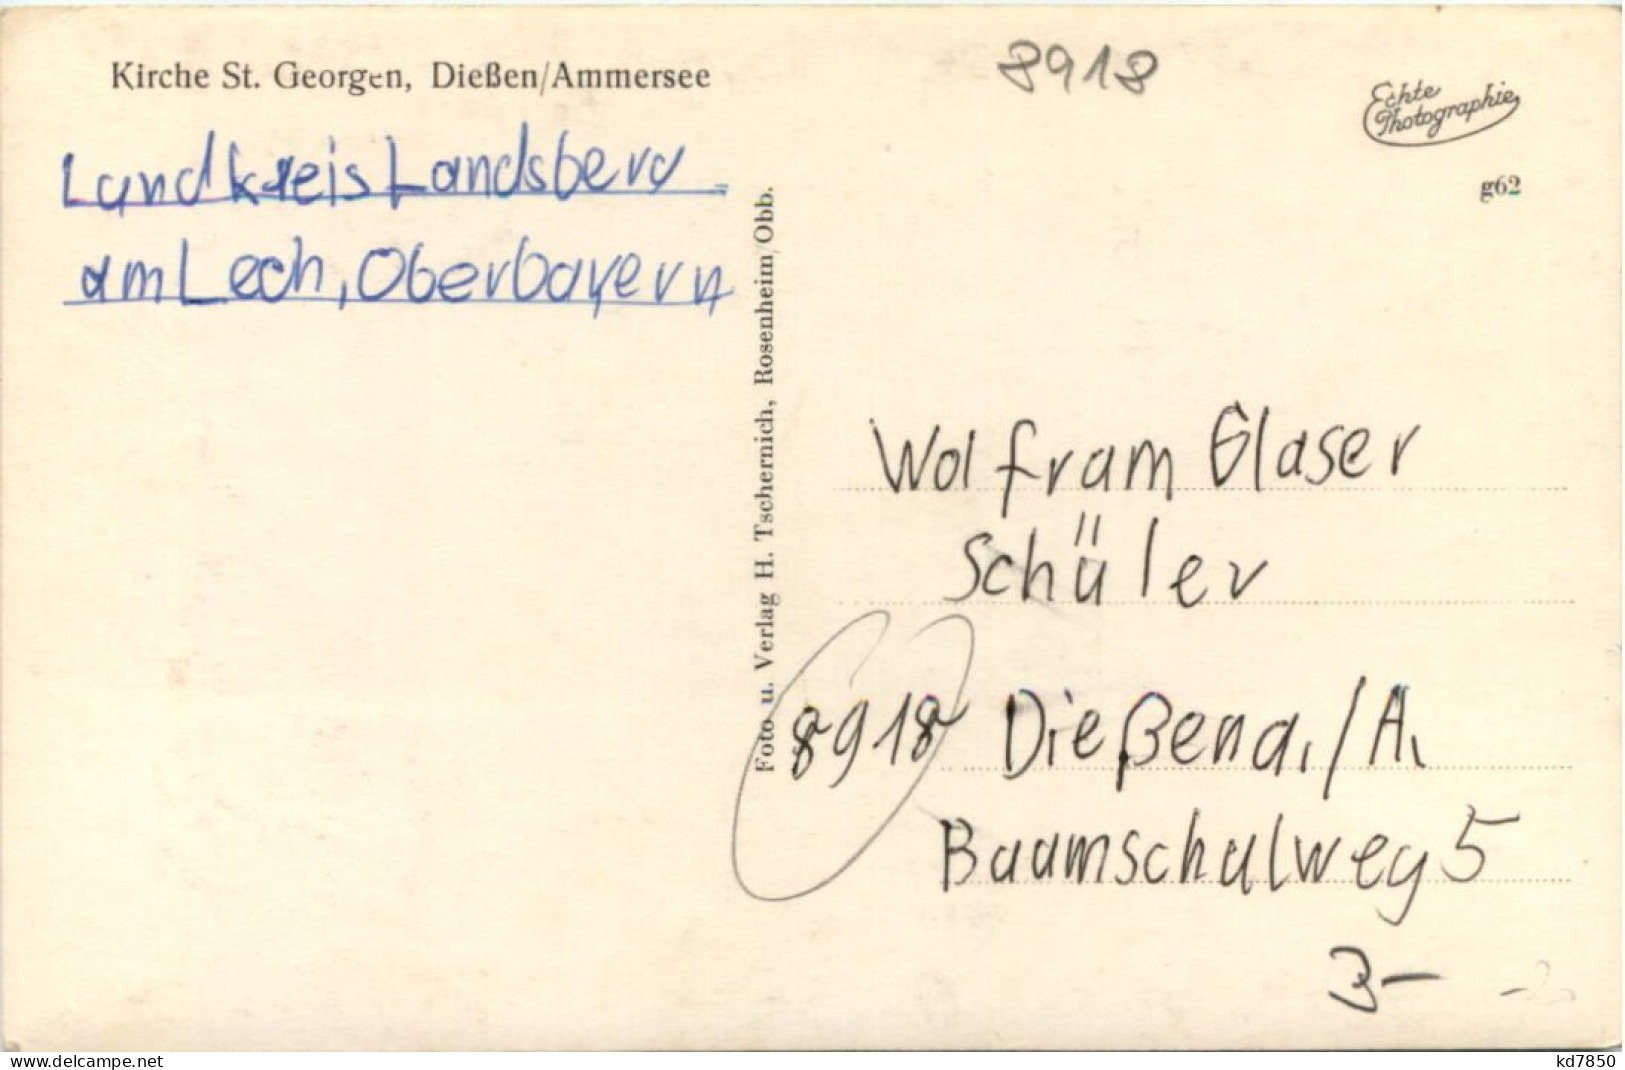 Kirche St. Georgen, Dießen/Ammersee
Landkreis Landsberg
am Lech, Oberbayern
Foto u. Verlag H. Tschernich, Rosenheim/Obb.
8918
Echte
Photographie
g62
Wolfram Glaser
Schüler
8918 Dießen a./A.
Baumschulweg 5
3-
delcampe.net
kd7850